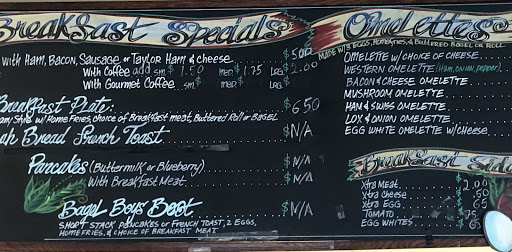 Breakfast Specials
with Ham, Bacon, Sausage or Taylor Ham & cheese $5.00
With Coffee add sm $1.50 med $1.75 LRG $2.00
With Gourmet Coffee sm $ med $ LRG $
Breakfast Plate: $6.50
Style w/ Home Fries, choice of Breakfast meat, Buttered Roll or BAGEL
ah Bread French Toast $N/A
Pancakes (Buttermilk or Blueberry) $N/A
With Breakfast Meat $N/A
Bagel Boys Best $N/A
SHORT STACK PANCAKES or FRENCH TOAST, 2 EGGS,
HOME FRIES, & CHOICE OF BREAKFAST MEAT
Omelettes
MADE W/3 EGGS, HOMEFRIES, & BUTTERED BAGEL OR ROLL
OMELETTE W/ CHOICE OF CHEESE
WESTERN OMELETTE (Ham, onion, pepper)
BACON & CHEESE OMELETTE
MUSHROOM OMELETTE
HAM & SWISS OMELETTE
LOX & ONION OMELETTE
EGG WHITE OMELETTE w/ CHEESE
Breakfast
Xtra MEAT $2.00
Xtra CHEESE 50
Xtra EGG 65
TOMATO $.75
EGG WHITES $